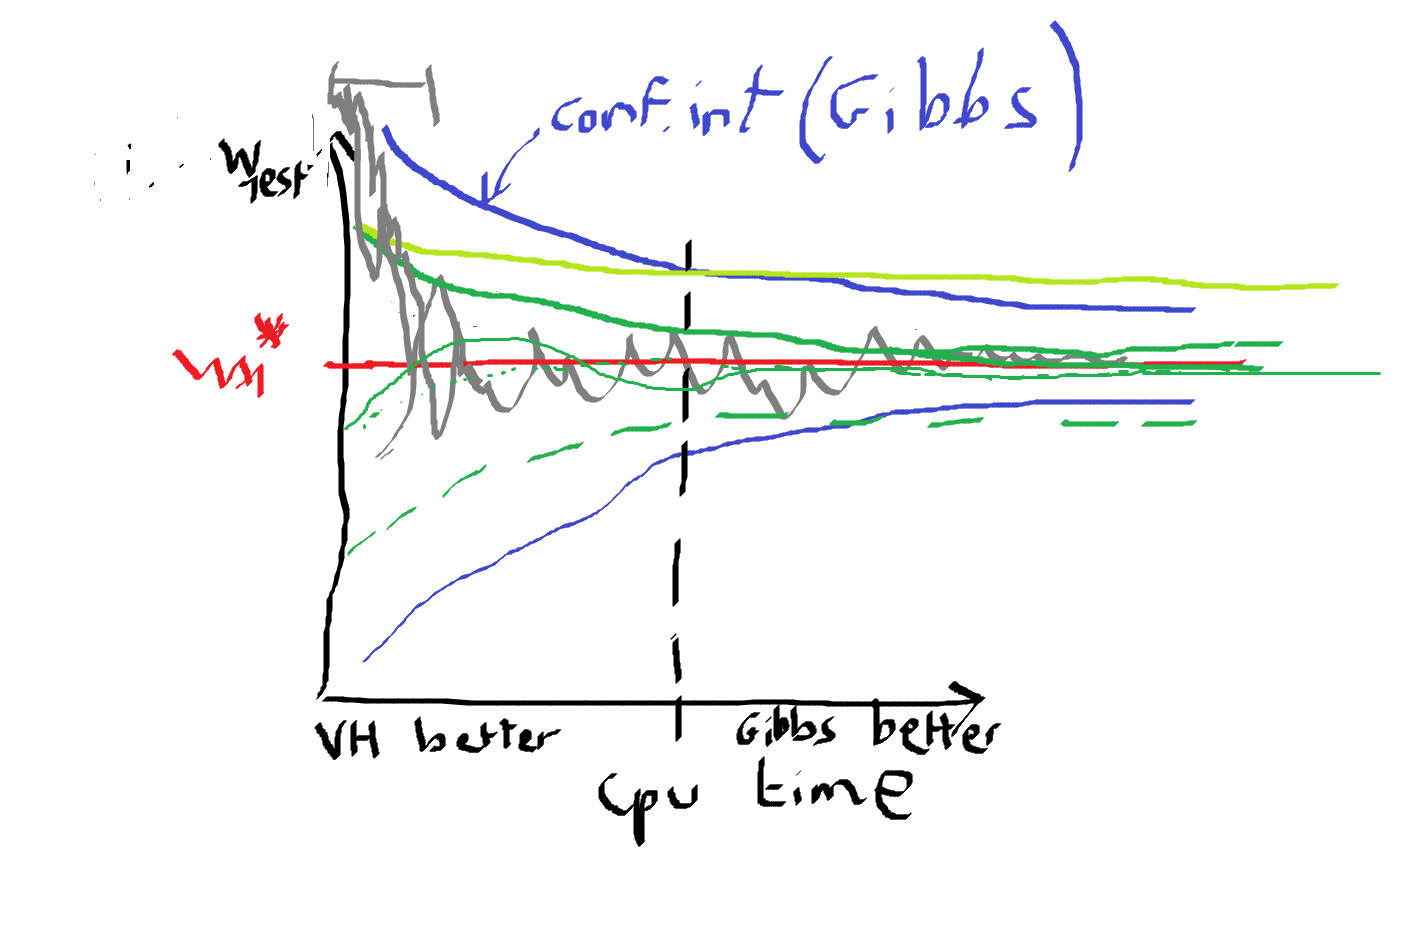 conf.int (Gibbs)
West
W*
VH better Gibbs better
cpu time